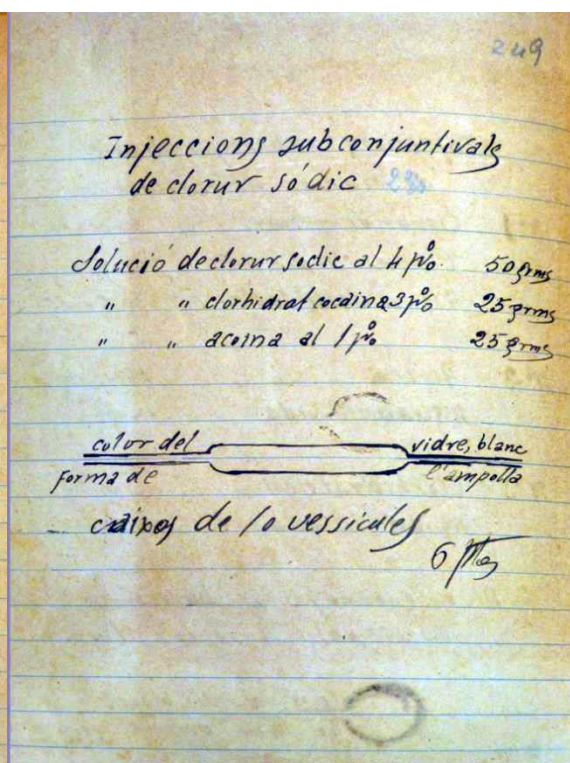 249
Injeccions subconjuntivals
de clorur sódic
Solució de clorur sodic al 4 p%. 50 grms
" " clorhidrat cocaina 3 p% 25 grms
" " acoina al 1 p% 25 grms
color del vidre, blanc
forma de l'ampolla
caixes de 10 vessicules
6 Ptes